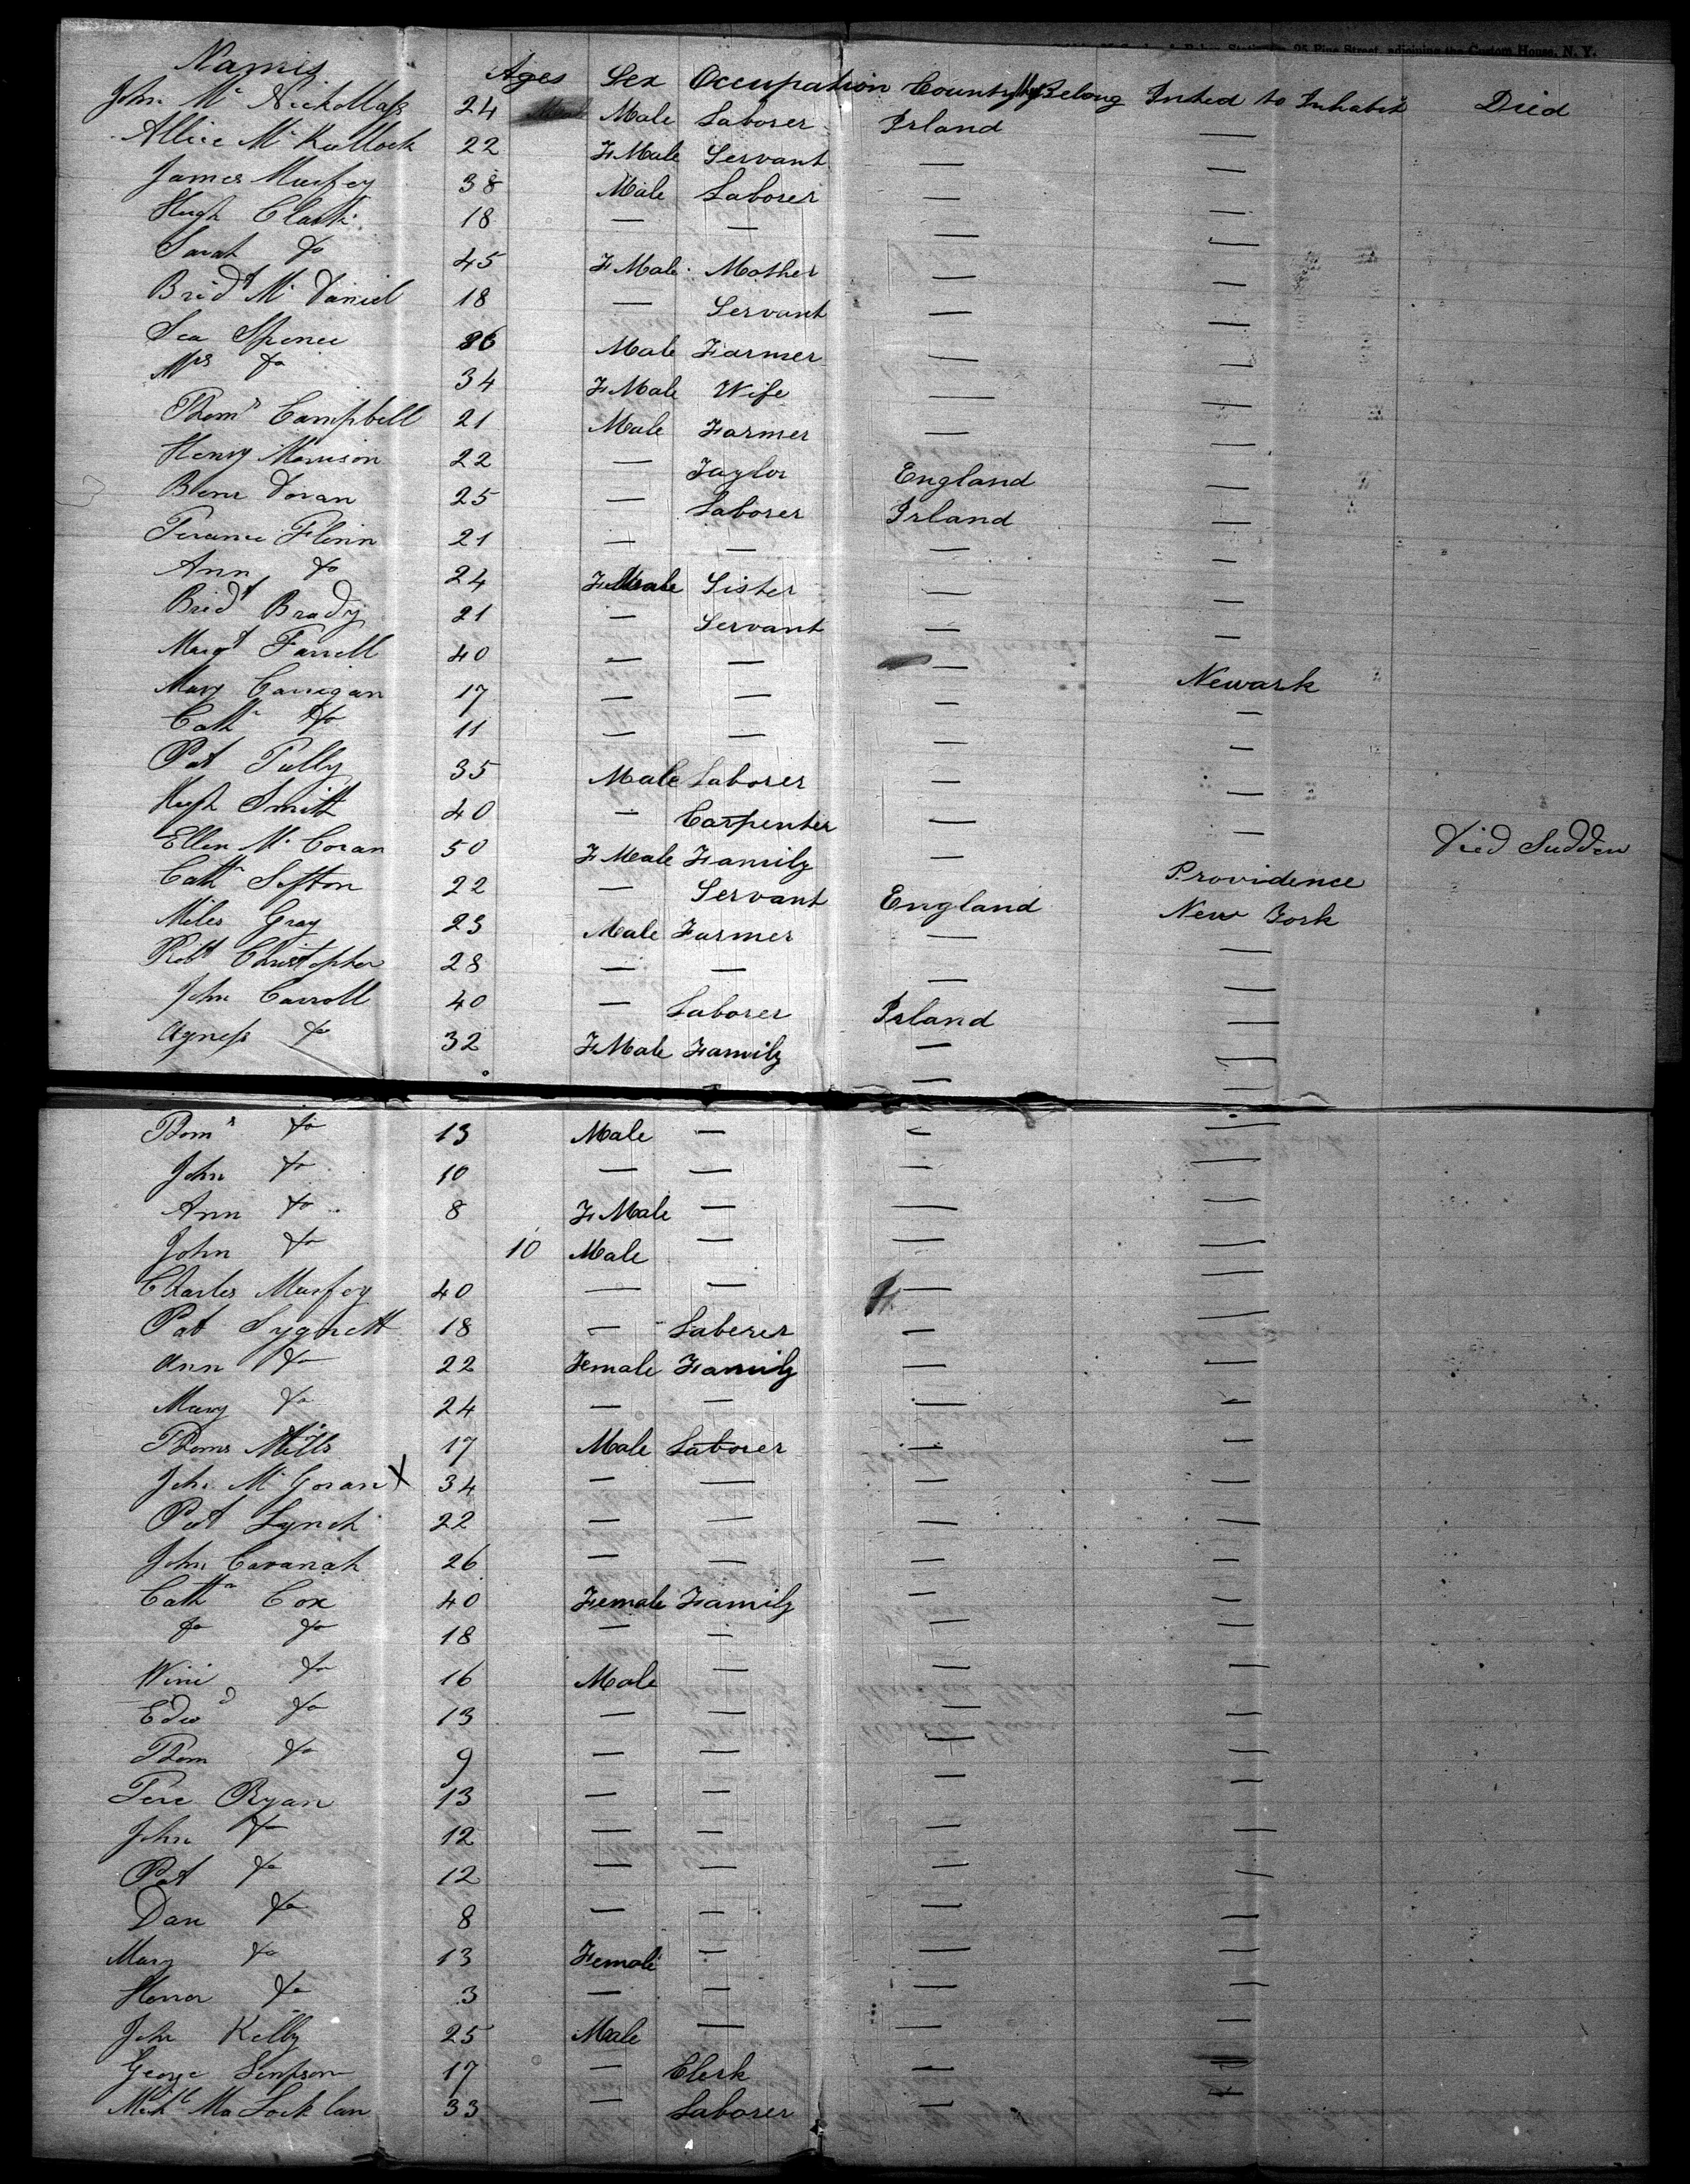 25 Pine Street, adjoining the Custom House, N. Y.
Names Ages Sex Occupation Country they Belong Inted to Inhabit Died
John Mc Nichollass 24 Male Laborer Irland —
Allice Mc Kullock 22 F Male Servant — —
James Murfey 38 Male Laborer — —
Hugh Clark 18 — — — —
Sarah Do 45 F Male Mother — —
Bridt Mc Daniel 18 — Servant — —
Spence 36 Male Farmer — —
Mrs Do 34 F Male Wife — —
Thoms Campbell 21 Male Farmer — —
Henry Morrison 22 — Taylor England —
Doran 25 — Laborer Irland —
Flinn 21 — — — —
Ann Do 24 F Male Sister — —
Bridt Brady 21 — Servant — —
Margt Farrell 40 — — — Newark
Mary Carrigan 17 — — — —
Cathn Do 11 — — — —
Pat Tully 35 Male Laborer — —
Hugh Smith 40 — Carpenter — —
Ellen Mc Coran 50 F Male Family — Providence Died Sudden
Cathn Sefton 22 — Servant England New York
Miles Gray 23 Male Farmer — —
Robt Christopher 28 — — — —
John Carroll 40 — Laborer Irland —
Agness Do 32 F Male Family — —
Thoms Do 13 Male — — —
John Do 10 — — — —
Ann Do 8 F Male — — —
John Do 10 Male — — —
Charles Murfey 40 — — — —
Pat Sygnett 18 — Laberer — —
Ann Do 22 Female Family — —
Mary Do 24 — — — —
Thoms Mills 17 Male Laborer — —
John Mc Goran X 34 — — — —
Pat Lynch 22 — — — —
John Cavanah 26 — — — —
Cathn Cox 40 Female Family — —
Do Do 18 — — — —
Wini Do 16 Male — — —
Edwd Do 13 — — — —
Thom Do 9 — — — —
Ryan 13 — — — —
John Do 12 — — — —
Pat Do 12 — — — —
Dan Do 8 — — — —
Mary Do 13 Female — — —
Honor Do 3 — — — —
John Kelly 25 Male — — —
George Simpson 17 — Clerk — —
Michl Ma Lock lan 33 — Laborer — —